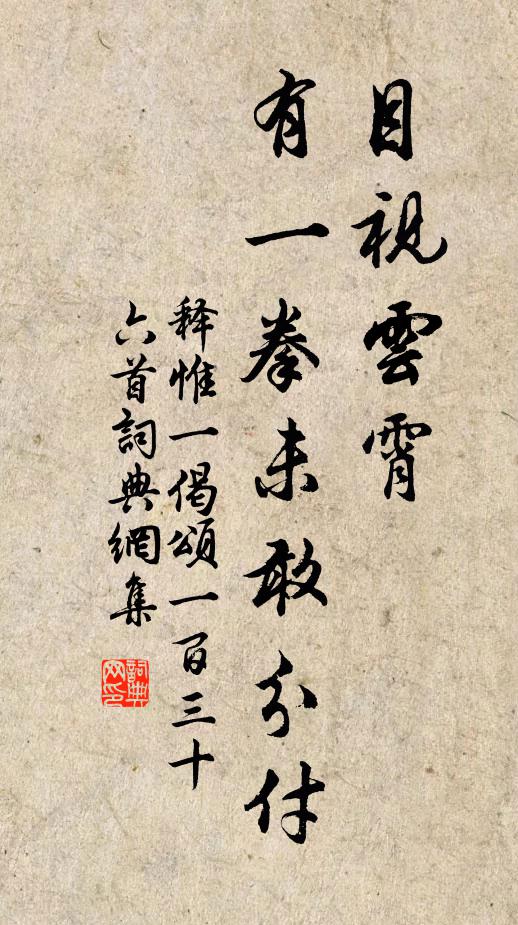 目視雲霄
有一拳未敢分付
释惟一偈頌一百三十
六首詞典網集
詞典网印